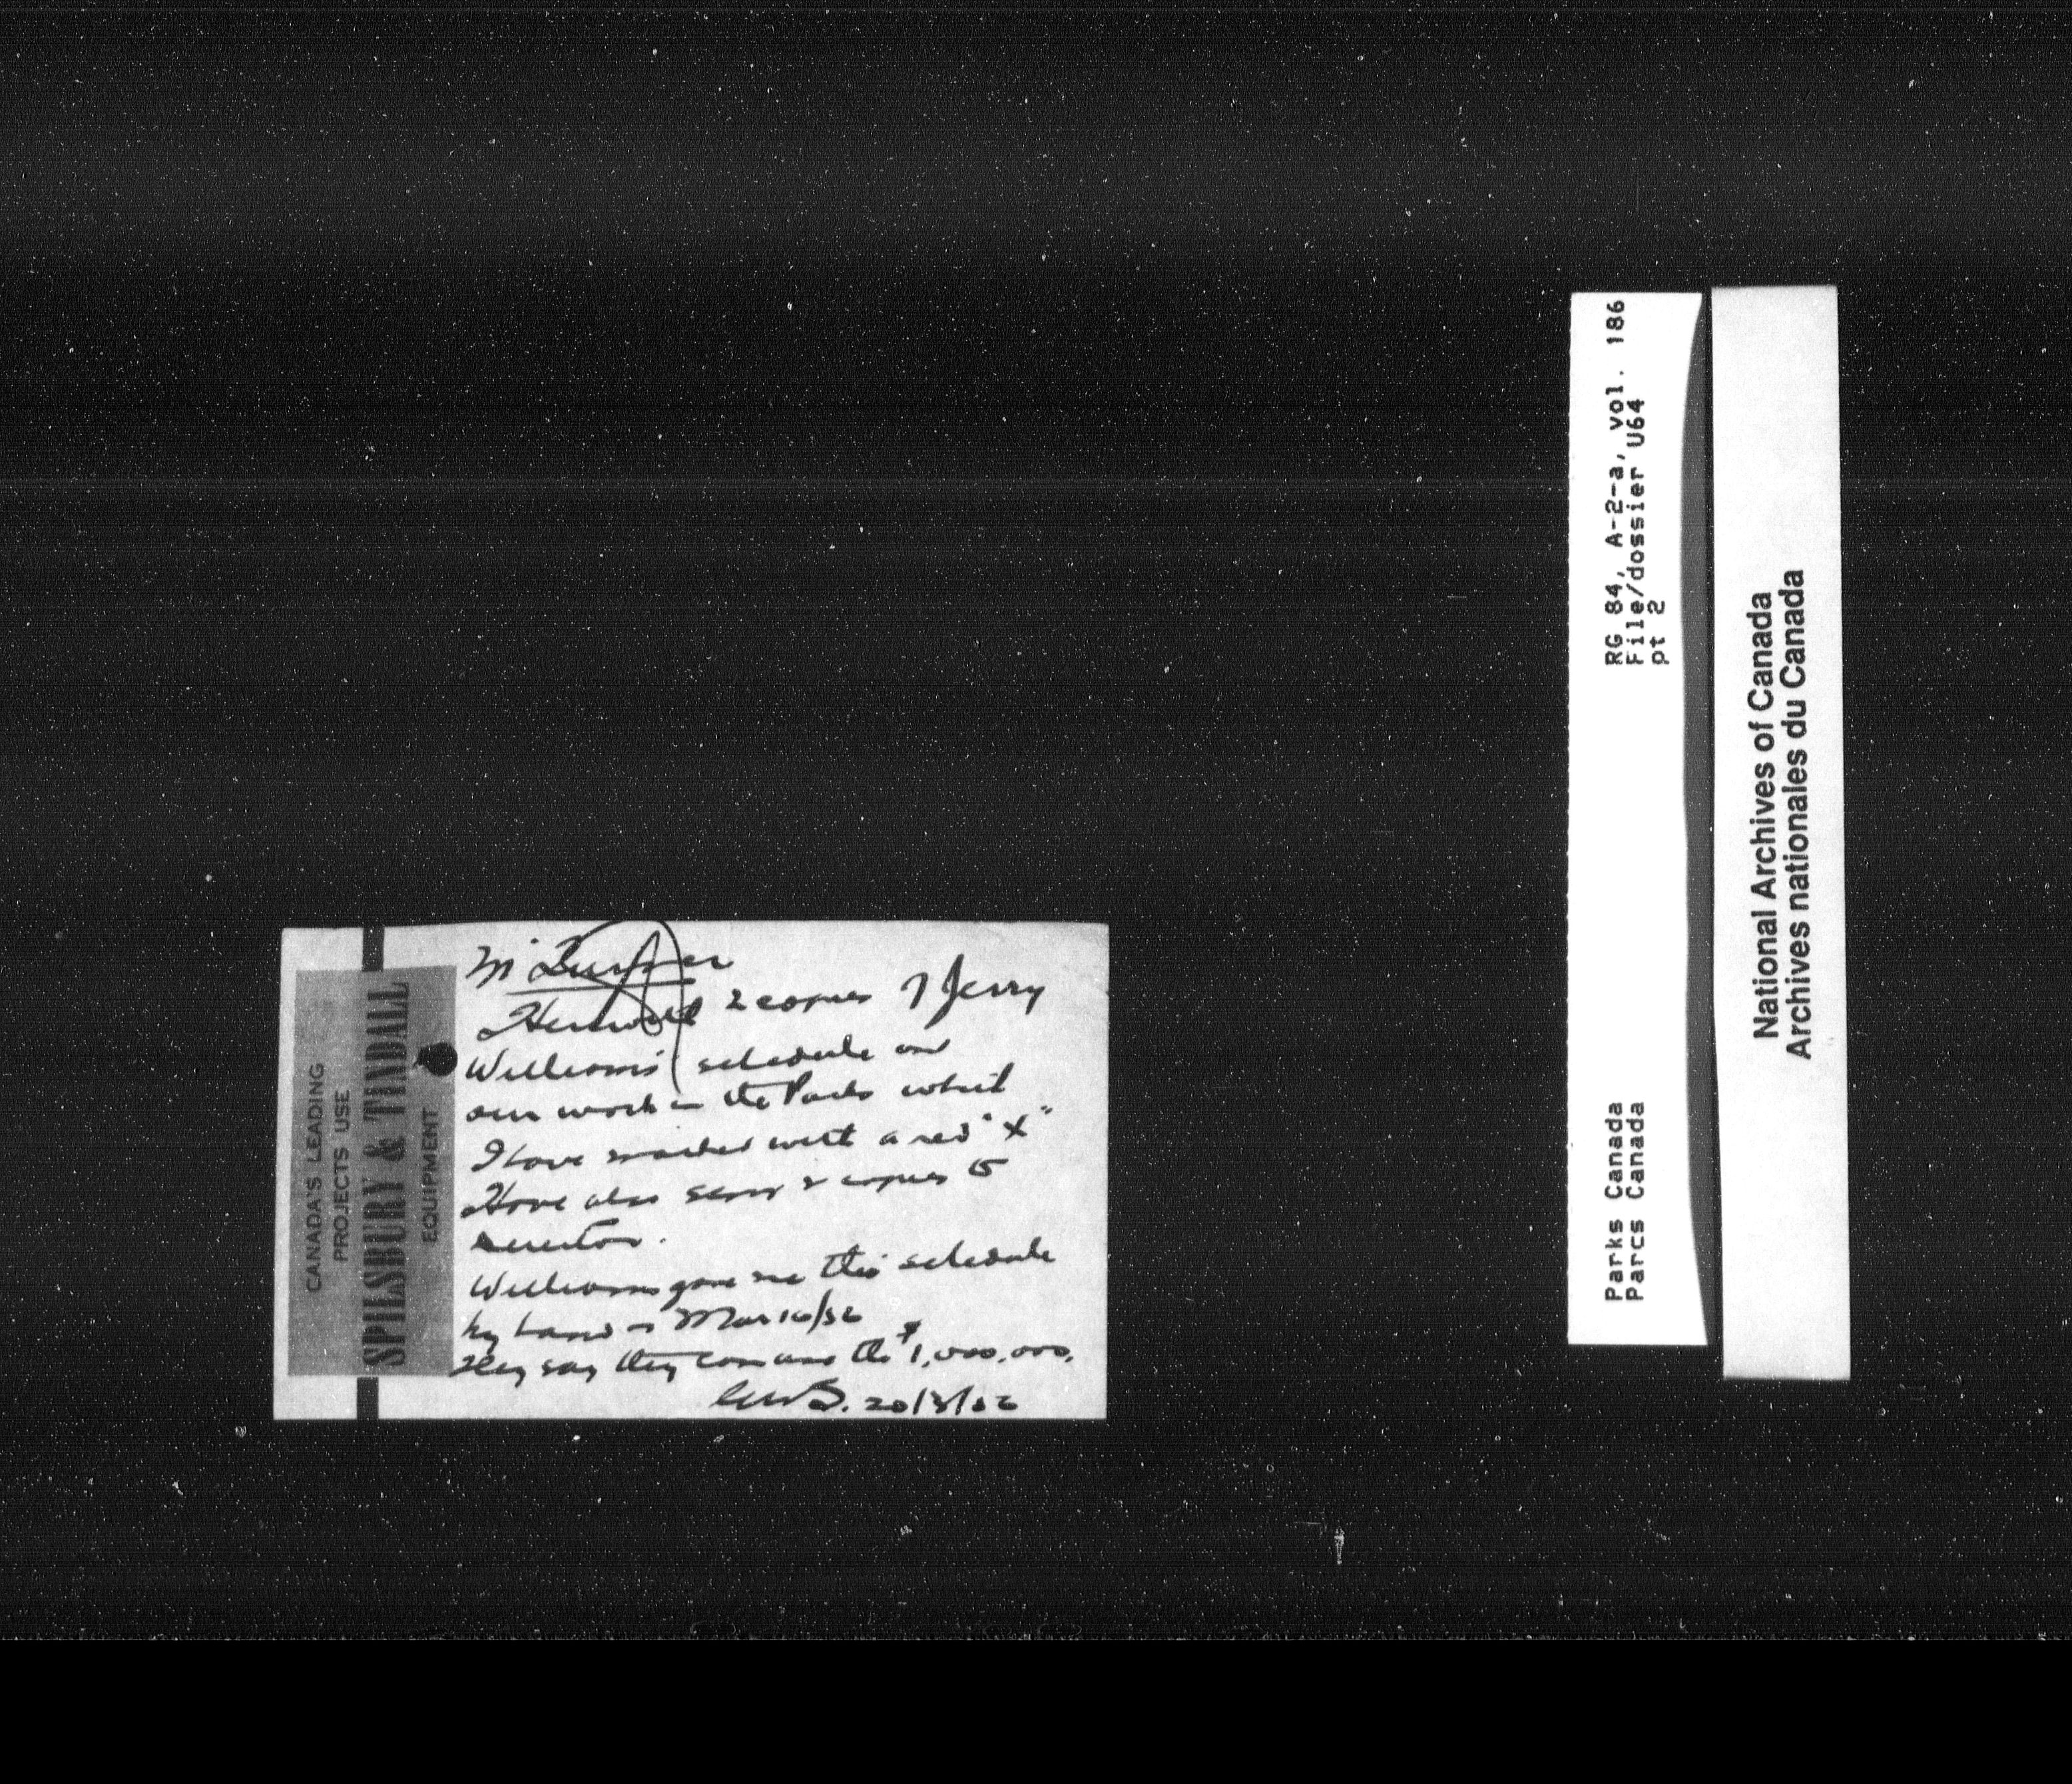 CANADA'S LEADING
PROJECTS USE
SPILSBURY & TINDALL
EQUIPMENT
Mr Turner
Herewith 2 copies of Jerry
Williams' schedule on
our work in the Parks which
I have marked with a red "X"
Have also sent 2 copies to
Director.
Williams gave me this schedule
by hand on Mar 16/56
They say they can use the $1,000,000.
20/3/56
RG 84, A-2-a, vol. 186
File/dossier U64
pt 2
Parks Canada
Parcs Canada
National Archives of Canada
Archives nationales du Canada